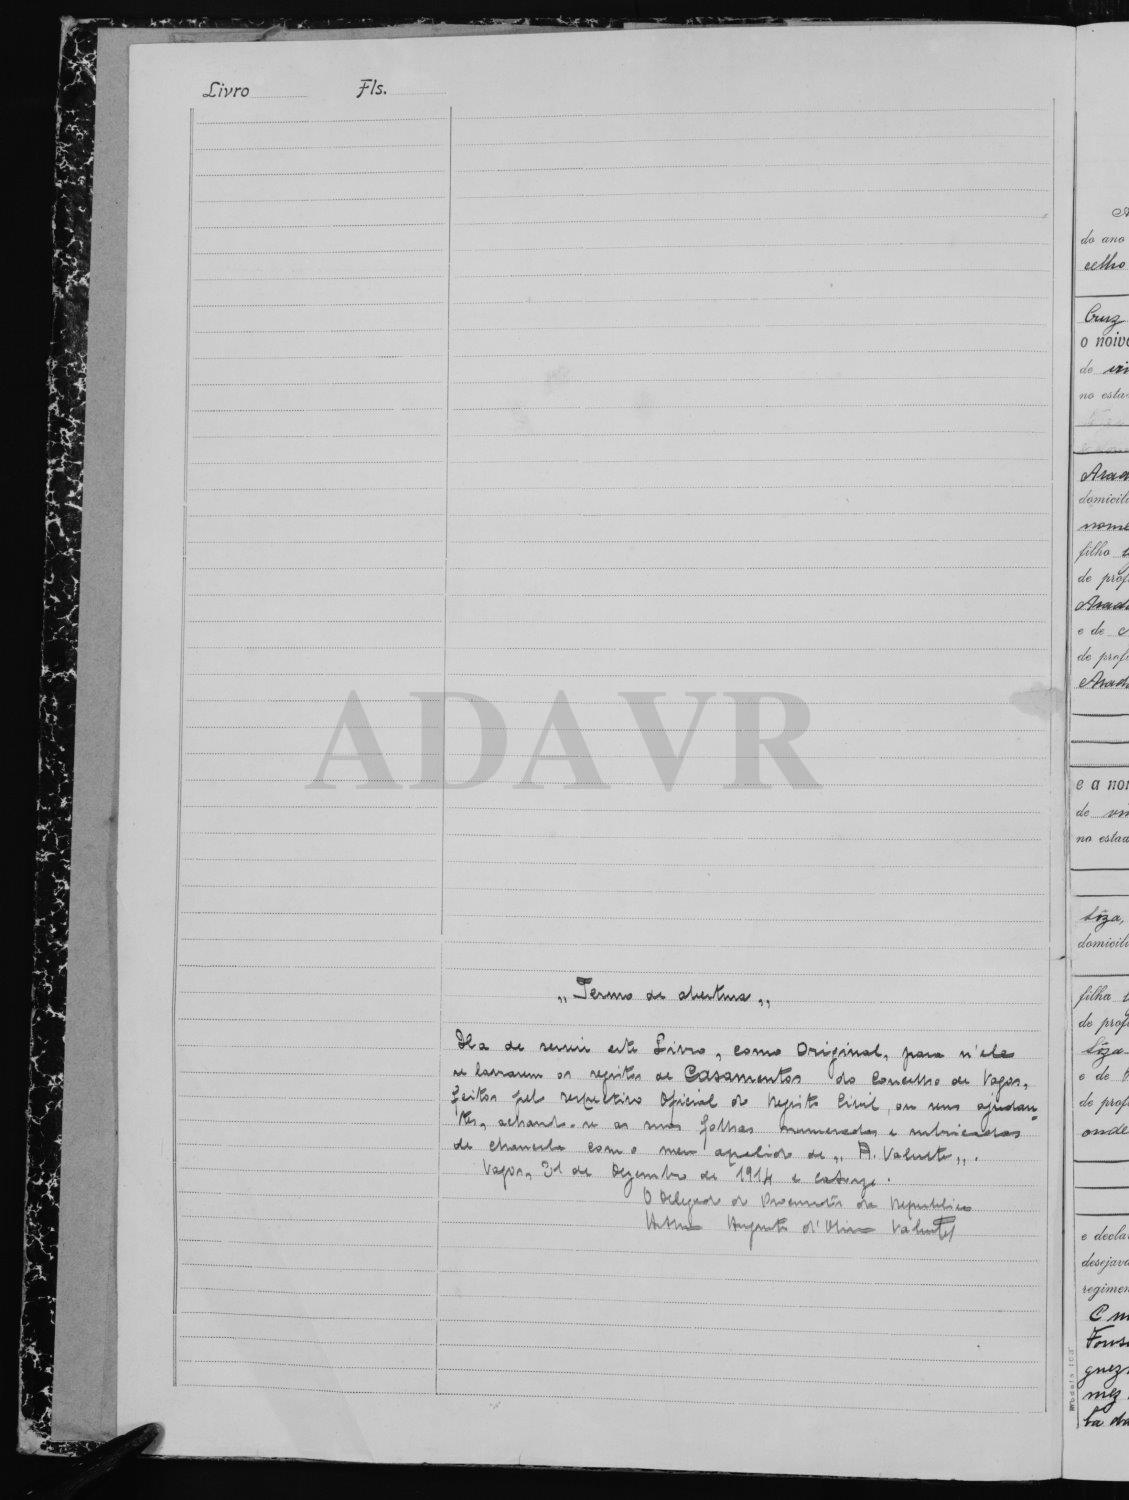 Livro Fls.
„Termo de abertura„
Ha de servir este Livro, como Original, para n'ele
se lavrarem os registos de Casamentos do Concelho de Vagos,
feitos pelo respectivo Oficial do Registo Civil, ou seus ajudan-
tes, achando-se as suas folhas numeradas e rubricadas
de chancela com o meu apelido de „A. Valente„.
Vagos, 31 de Dezembro de 1914 e catorze.
O Delegado do Procurador da Republica
Augusto d'Oliva Valente
ADAVR
do ano
celho
Cruz
o noivo
de
no esta
domicili
nome
filho
de prof
e de
de profi
e a noi
de
no estad
domicili
filha
de prof
e de
de prof
onde
e decla
desejav
regimen
Modelo 103